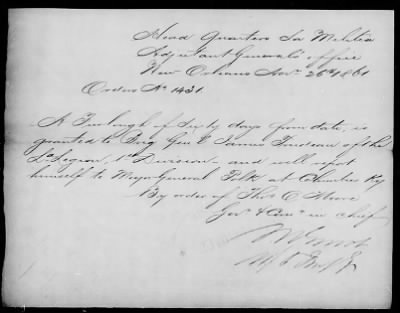 Head Quarters La Militia
Adjutant General's office
New Orleans Nov. 26th 1861
Orders No 1431.
A Furlough of Sixty days from date, is
granted to Brig. Genl James of the
La Legion, 1st Division - and will report
himself to Major General Polk at Columbus Ky
By order of Tho. O. Moore
Gov. & Com. in chief